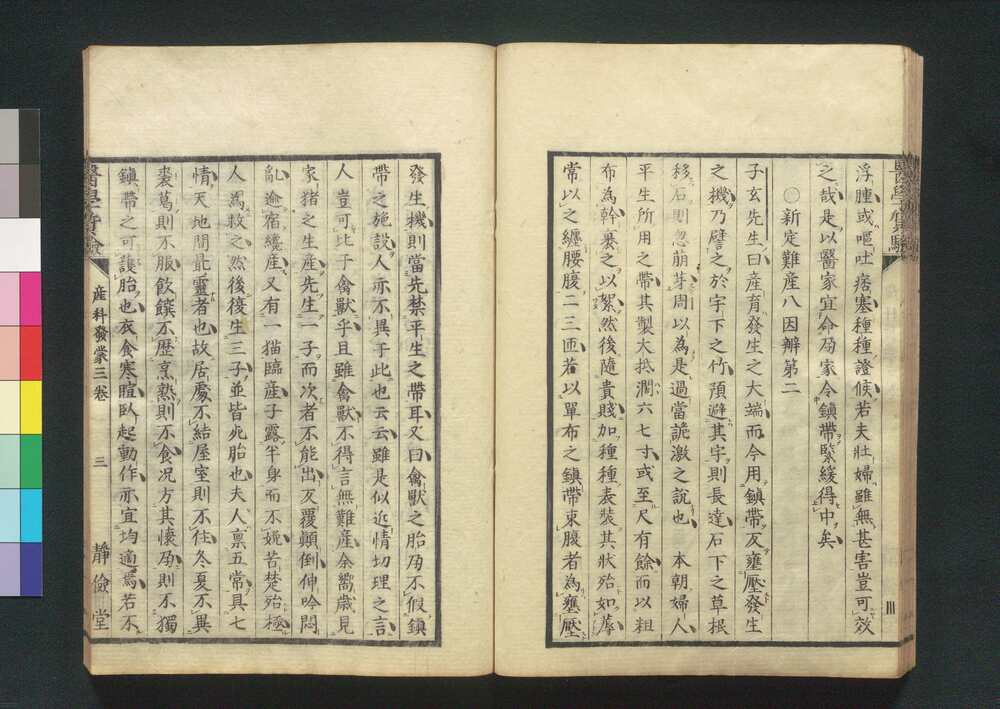 浮腫或嘔吐痞塞種種證候若夫壯婦雖無甚害豈可效
之哉是以醫家宜命孕家令鎮帶緊緩得中矣
○新定難產八因辨第二
子玄先生曰產育發生之大端而今用鎮帶反壅壓發生
之機乃譬之於宇下之竹預避其宇則長達石下之草根
移石則忽萌芽周以為是過當詭激之說也 本朝婦人
平生所用之帶其製大抵濶六七寸或至尺有餘而以粗
布為幹裹之以絮然後隨貴賤加種種表裝其狀殆如蓐
常以之纏腰腹二三匝若以單布之鎮帶束腹者為壅壓
發生機則當先禁平生之帶耳又曰禽獸之胎孕不假鎮
帶之施設人亦不異于此也云云雖是似近情切理之言
人豈可比于禽獸乎且雖禽獸不得言無難產余嚮歲見
家猪之生產先生一子而次者不能出反覆顛倒伸吟悶
亂逾宿纔產又有一猫臨產子露半身而不娩苦楚殆極
人為救之然後復生三子並皆死胎也夫人禀五常具七
情天地間最靈者也故居處不結屋室則不住冬夏不異
裘葛則不服飲饌不歷烹熟則不食况方其懷孕則不獨
鎮帶之可護胎也衣食寒暄臥起動作亦宜均適焉若不
產科發蒙三卷 三 靜儉堂